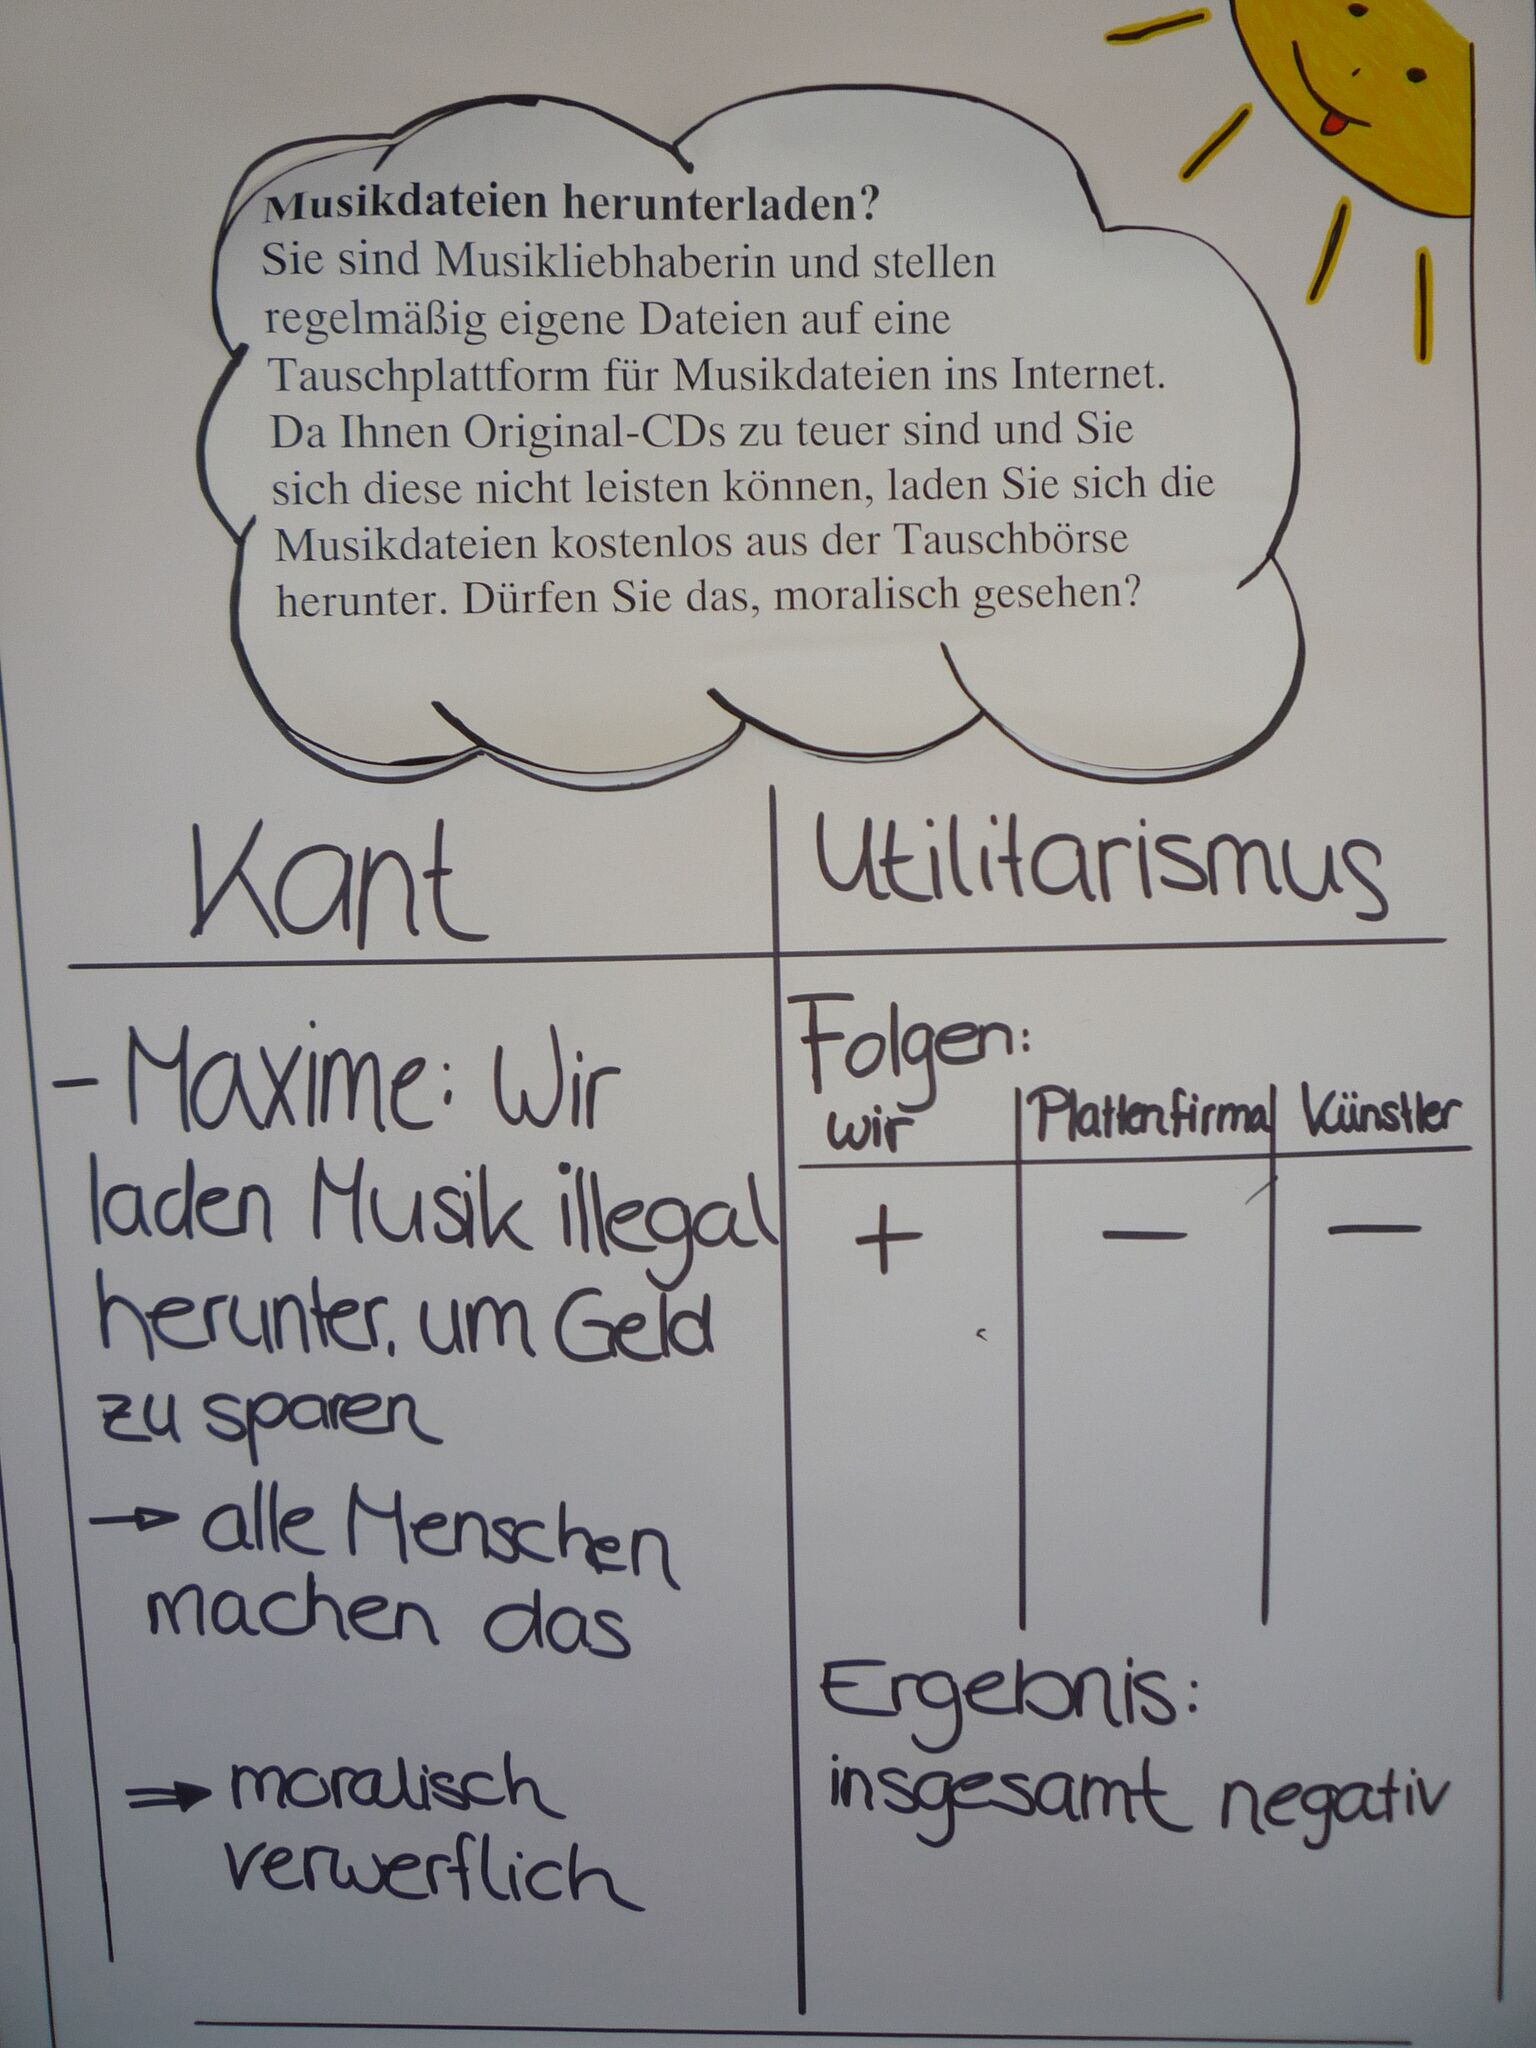 Musikdateien herunterladen?
Sie sind Musikliebhaberin und stellen
regelmäßig eigene Dateien auf eine
Tauschplattform für Musikdateien ins Internet.
Da Ihnen Original-CDs zu teuer sind und Sie
sich diese nicht leisten können, laden Sie sich die
Musikdateien kostenlos aus der Tauschbörse
herunter. Dürfen Sie das, moralisch gesehen?
Kant
- Maxime: Wir
laden Musik illegal
herunter, um Geld
zu sparen
→ alle Menschen
machen das
⇒ moralisch
verwerflich
Utilitarismus
Folgen:
wir Plattenfirma Künstler
+ — —
Ergebnis:
insgesamt negativ